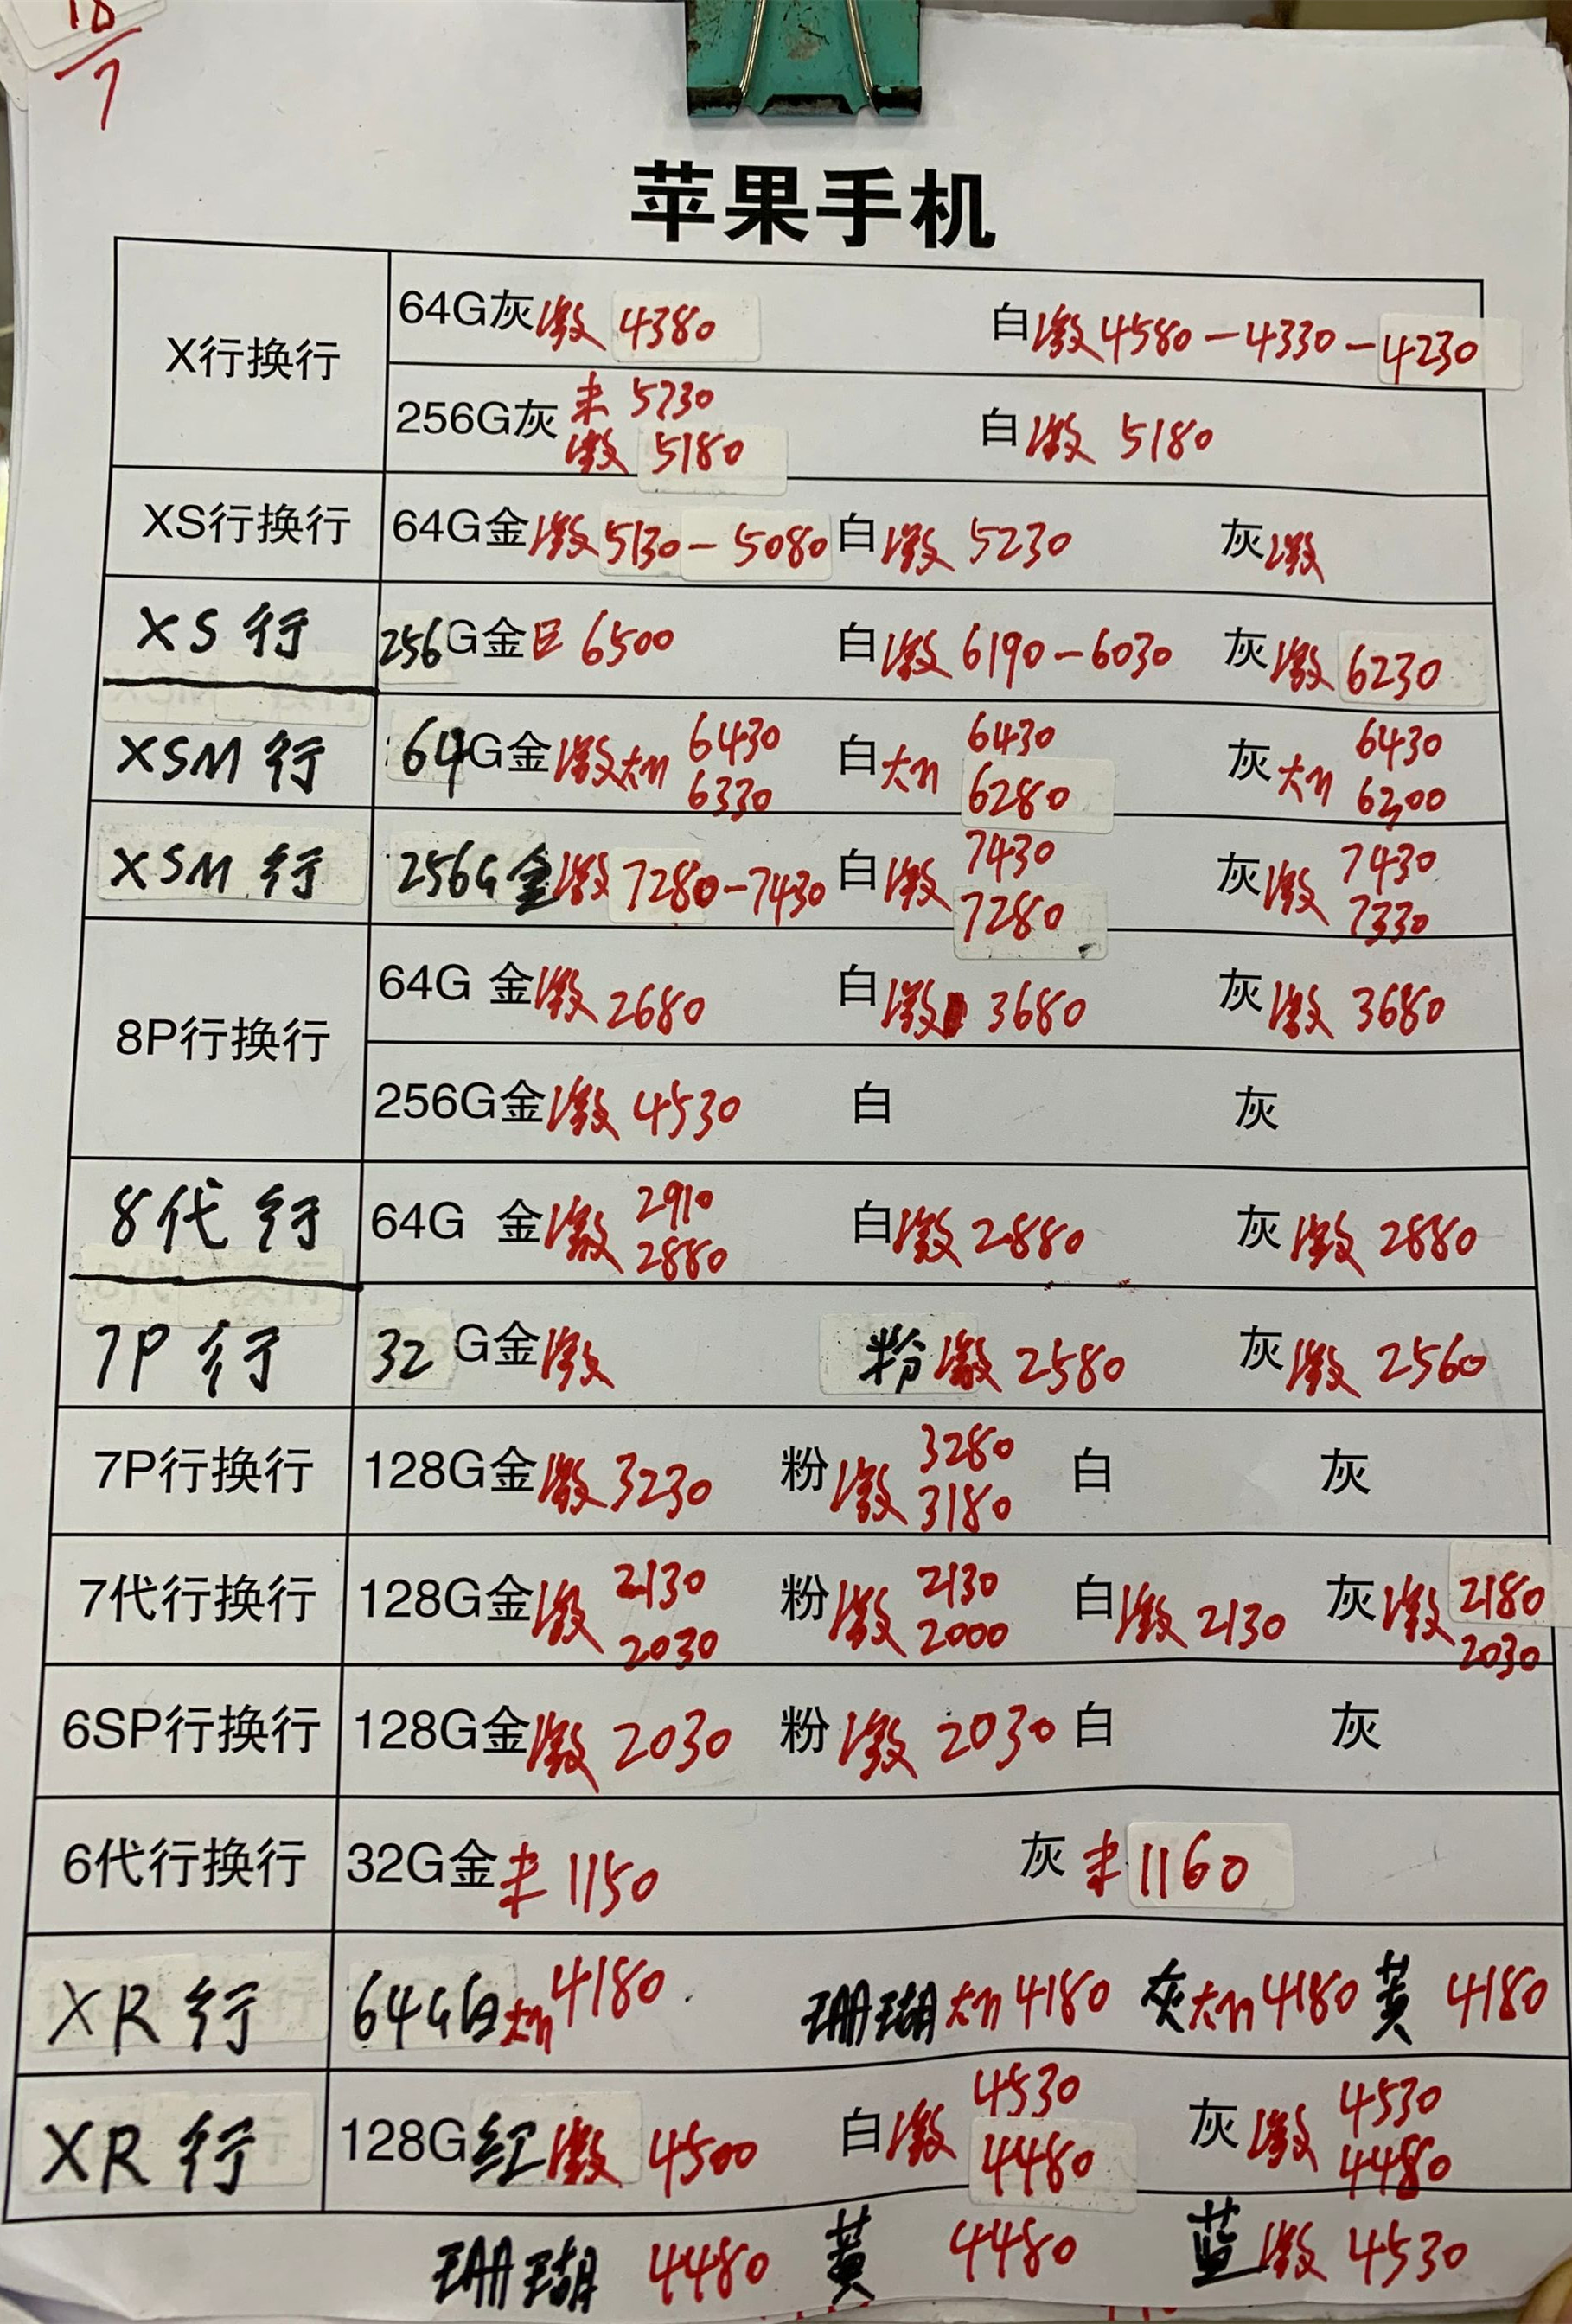 18/7
苹果手机
X行换行 64G灰 激 4380 白 激 4580-4330-4230
256G灰 未 5730 激 5180 白 激 5180
XS行换行 64G金 激 5130-5080 白 激 5230 灰 激
XS行 256G金 6500 白 激 6190-6030 灰 激 6230
XSM行 64G金 激 6430 6330 白 6430 6280 灰 6430
XSM行 256G金 激 7280-7430 白 激 7430 7280 灰 激 7430 7330
8P行换行 64G 金 激 2680 白 激 3680 灰 激 3680
256G金 激 4530 白 灰
8代行 64G 金 激 2910 2880 白 激 2880 灰 激 2880
7P行 32G金 激 粉 激 2580 灰 激 2560
7P行换行 128G金 激 3230 粉 激 3280 3180 白 灰
7代行换行 128G金 激 2130 2030 粉 激 2130 2000 白 激 2130 灰 激 2180 2030
6SP行换行 128G金 激 2030 粉 激 2030 白 灰
6代行换行 32G金 未 1150 灰 未 1160
XR行 64G白 4180 珊瑚 4180 灰 4180 黄 4180
XR行 128G红 激 4500 白 激 4530 4480 灰 激 4530 4480
珊瑚 4480 黄 4480 蓝 激 4530